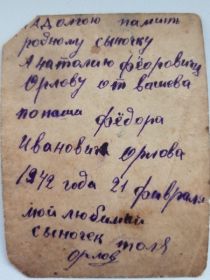 Адолгою память
родному сыночку
Анатолию Фёдоровичу
Орлову от вашева
попаши Фёдора
Ивановича Орлова
1942 года 21 февраля
мой любимий
сыночек толя
Орлов